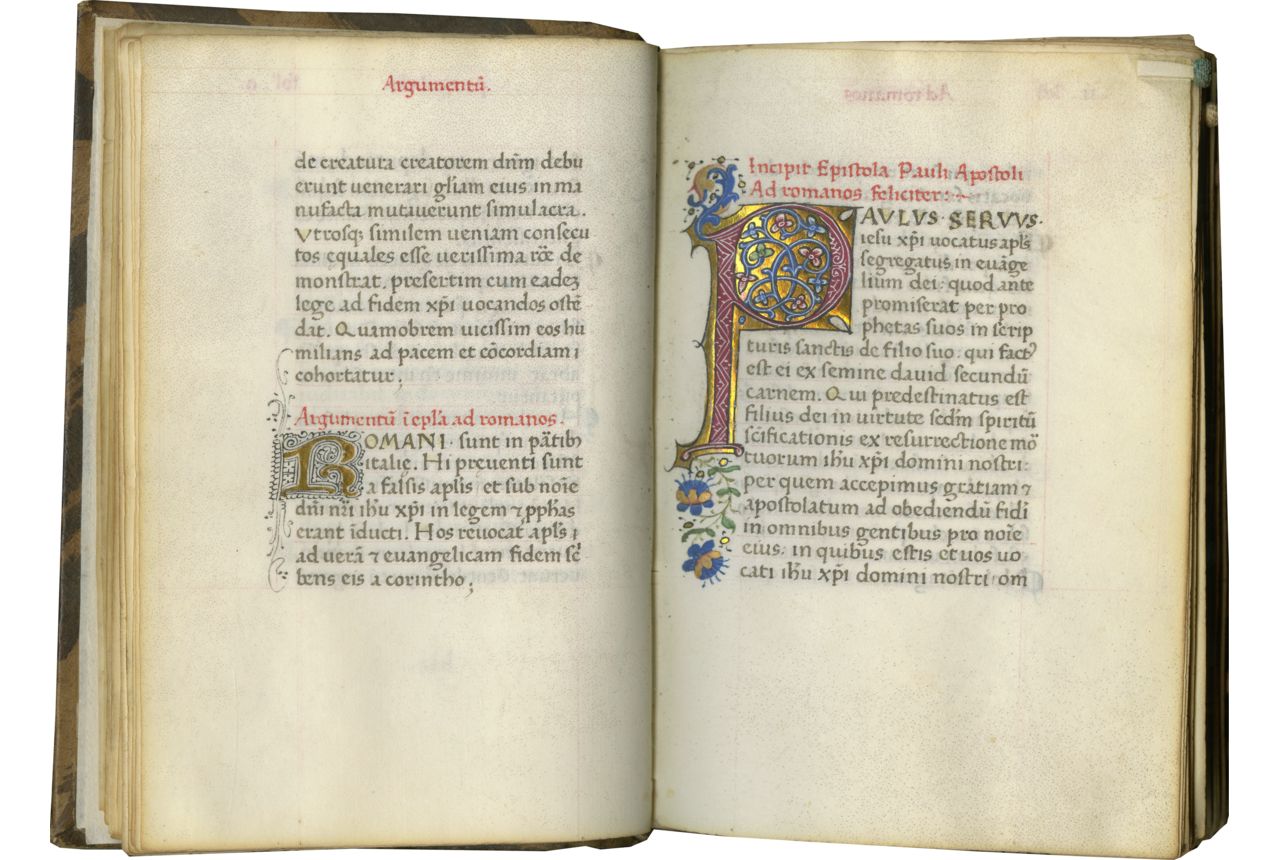 Argumentũ.
de creatura creatorem dñm debu
erunt uenerari gl̃iam eius in ma
nufacta mutauerunt simulacra.
Vtrosq; similem ueniam consecu
tos equales esse uerissima rõe de
monstrat. presertim cum eadeʒ
lege ad fidem xp̃i uocandos ostẽ
dat. Quamobrem uicissim eos hu
milians ad pacem et cõcordiam i
cohortatur;
Argumentũ ĩ epl̃a ad romanos.
ROMANI. sunt in p̃atibꝫ
italię. Hi preuenti sunt
a falsis apl̃is et sub noĩe
dñi nr̃i ihũ xp̃i in legem ⁊ ꝓphãs
erant ĩducti. Hos reuocat apl̃s i
ad uerã ⁊ euangelicam fidem scĩ
bens eis a corintho;
Incipit Epistola Pauli Apostoli
Ad romanos feliciter:
PAVLVS. SERVVS.
iesu xp̃i uocatus apl̃s
segregatus in euãge
lium dei: quod ante
promiserat per pro
phetas suos in scrip
turis sanctis de filio suo. qui factꝰ
est ei ex semine dauid secundũ
carnem. Qui predestinatus est
filius dei in uirtute sedm̃ spiritũ
sc̃ificationis ex resurrectione mõ
tuorum ihũ xp̃i domini nostri:
per quem accepimus gratiam ⁊
apostolatum ad obediendũ fidĩ
in omnibus gentibus pro noĩe
eius: in quibus estis et uos uo
cati ihũ xp̃i domini nostri om